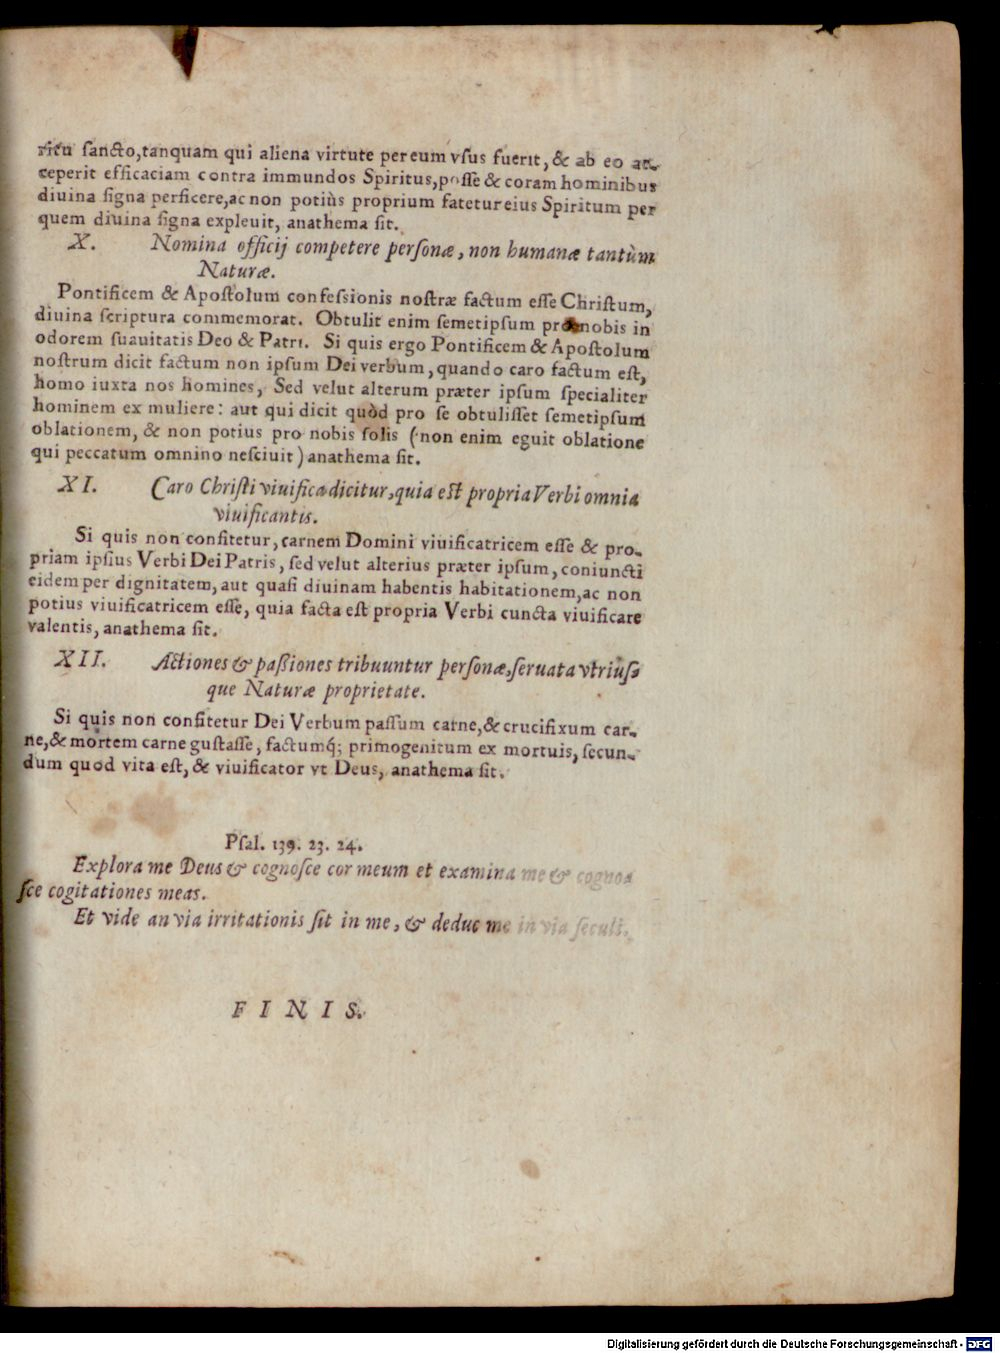 ritu ſancto,tanquam qui aliena virtute per eum vſus fuerit, & ab eo ac-
ceperit efficaciam contra immundos Spiritus,poſſe & coram hominibus
diuina ſigna perficere,ac non potiùs proprium fatetur eius Spiritum per
quem diuina ſigna expleuit, anathema ſit.
X. Nomina officij competere perſonæ, non humanæ tantùm
Naturæ.
Pontificem & Apoſtolum confeſſionis noſtræ factum eſſe Chriſtum,
diuina ſcriptura commemorat. Obtulit enim ſemetipſum pro nobis in
odorem ſuauitatis Deo & Patri. Si quis ergo Pontificem & Apoſtolum
noſtrum dicit factum non ipſum Dei verbum, quando caro factum eſt,
homo iuxta nos homines, Sed velut alterum præter ipſum ſpecialiter
hominem ex muliere: aut qui dicit quòd pro ſe obtuliſſet ſemetipſum
oblationem, & non potius pro nobis ſolis (non enim eguit oblatione
qui peccatum omnino neſciuit) anathema ſit.
XI. Caro Chriſti viuifica dicitur, quia eſt propria Verbi omnia
viuificantis.
Si quis non confitetur, carnem Domini viuificatricem eſſe & pro-
priam ipſius Verbi Dei Patris, ſed velut alterius præter ipſum, coniuncti
eidem per dignitatem, aut quaſi diuinam habentis habitationem,ac non
potius viuificatricem eſſe, quia facta eſt propria Verbi cuncta viuificare
valentis, anathema ſit.
XII. Actiones & paſſiones tribuuntur perſonæ,ſeruata vtriuſ-
que Naturæ proprietate.
Si quis non confitetur Dei Verbum paſſum carne,& crucifixum car-
ne,& mortem carne guſtaſſe, factumq́; primogenitum ex mortuis, ſecun-
dum quod vita eſt, & viuificator vt Deus, anathema ſit.
Pſal. 139. 23. 24.
Explora me Deus & cognoſce cor meum et examina me & cogno-
ſce cogitationes meas.
Et vide an via irritationis ſit in me, & deduc me in via ſeculi.
FINIS.
Digitalisierung gefördert durch die Deutsche Forschungsgemeinschaft - DFG